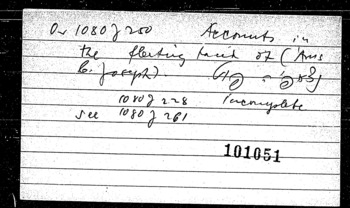 Or 1080 J 200 Accounts in
the fleeting hand of (Ams
b. Joseph)
1080 J 228 Incomplete
see 1080 J 261
101051